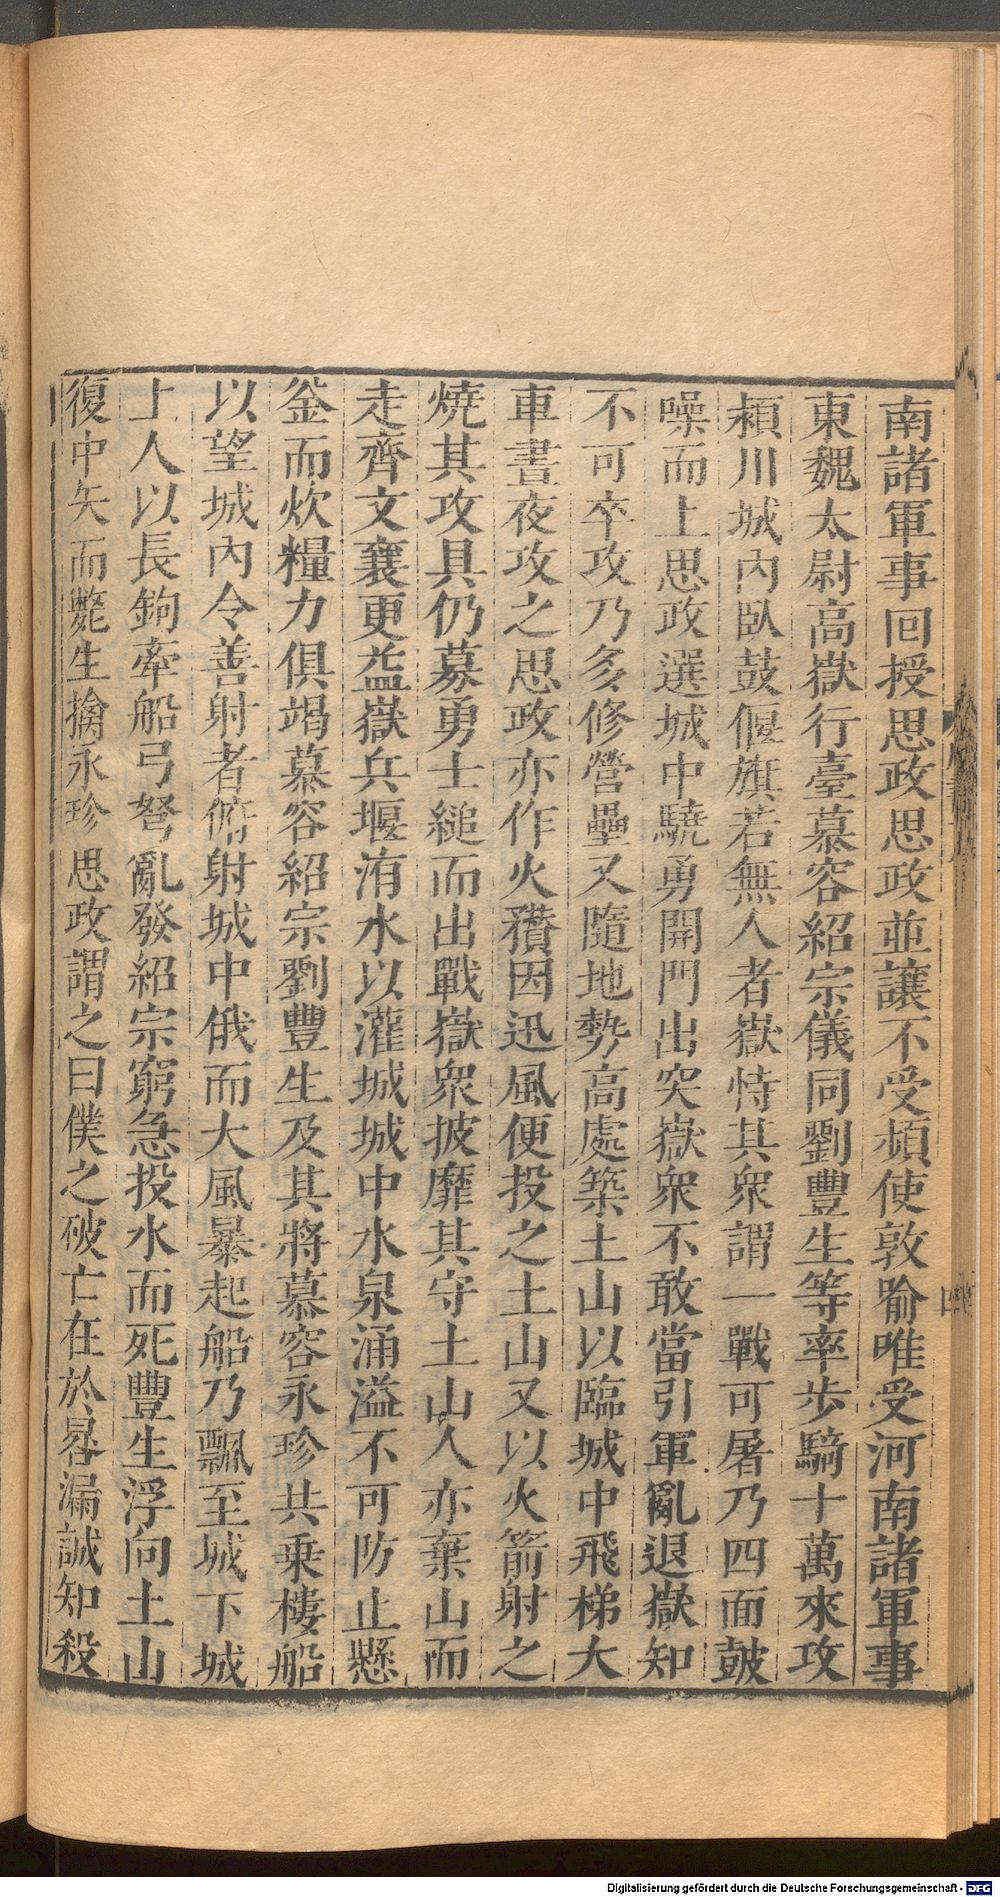 南諸軍事回授思政思政並讓不受頻使敦喻唯受河南諸軍事
東魏太尉高嶽行臺慕容紹宗儀同劉豐生等率步騎十萬來攻
潁川城內臥鼓偃旗若無人者嶽恃其衆謂一戰可屠乃四面鼓
噪而上思政選城中驍勇開門出突嶽衆不敢當引軍亂退嶽知
不可卒攻乃多修營壘又隨地勢高處築土山以臨城中飛梯大
車晝夜攻之思政亦作火䂎因迅風便投之土山又以火箭射之
燒其攻具仍募勇士縋而出戰嶽衆披靡其守土山人亦棄山而
走齊文襄更益嶽兵堰洧水以灌城城中水泉涌溢不可防止懸
釜而炊糧力俱竭慕容紹宗劉豐生及其將慕容永珍共乗樓船
以望城內令善射者俯射城中俄而大風暴起船乃飄至城下城
上人以長鉤牽船弓弩亂發紹宗窮急投水而死豐生浮向土山
復中矢而斃生擒永珍思政謂之曰僕之破亡在於晷漏誠知殺
Digitalisierung gefördert durch die Deutsche Forschungsgemeinschaft - DFG